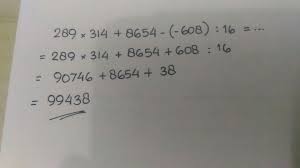 289 × 314 + 8654 - (-608) : 16 = ...
= 289 × 314 + 8654 + 608 : 16
= 90746 + 8654 + 38
= 99438